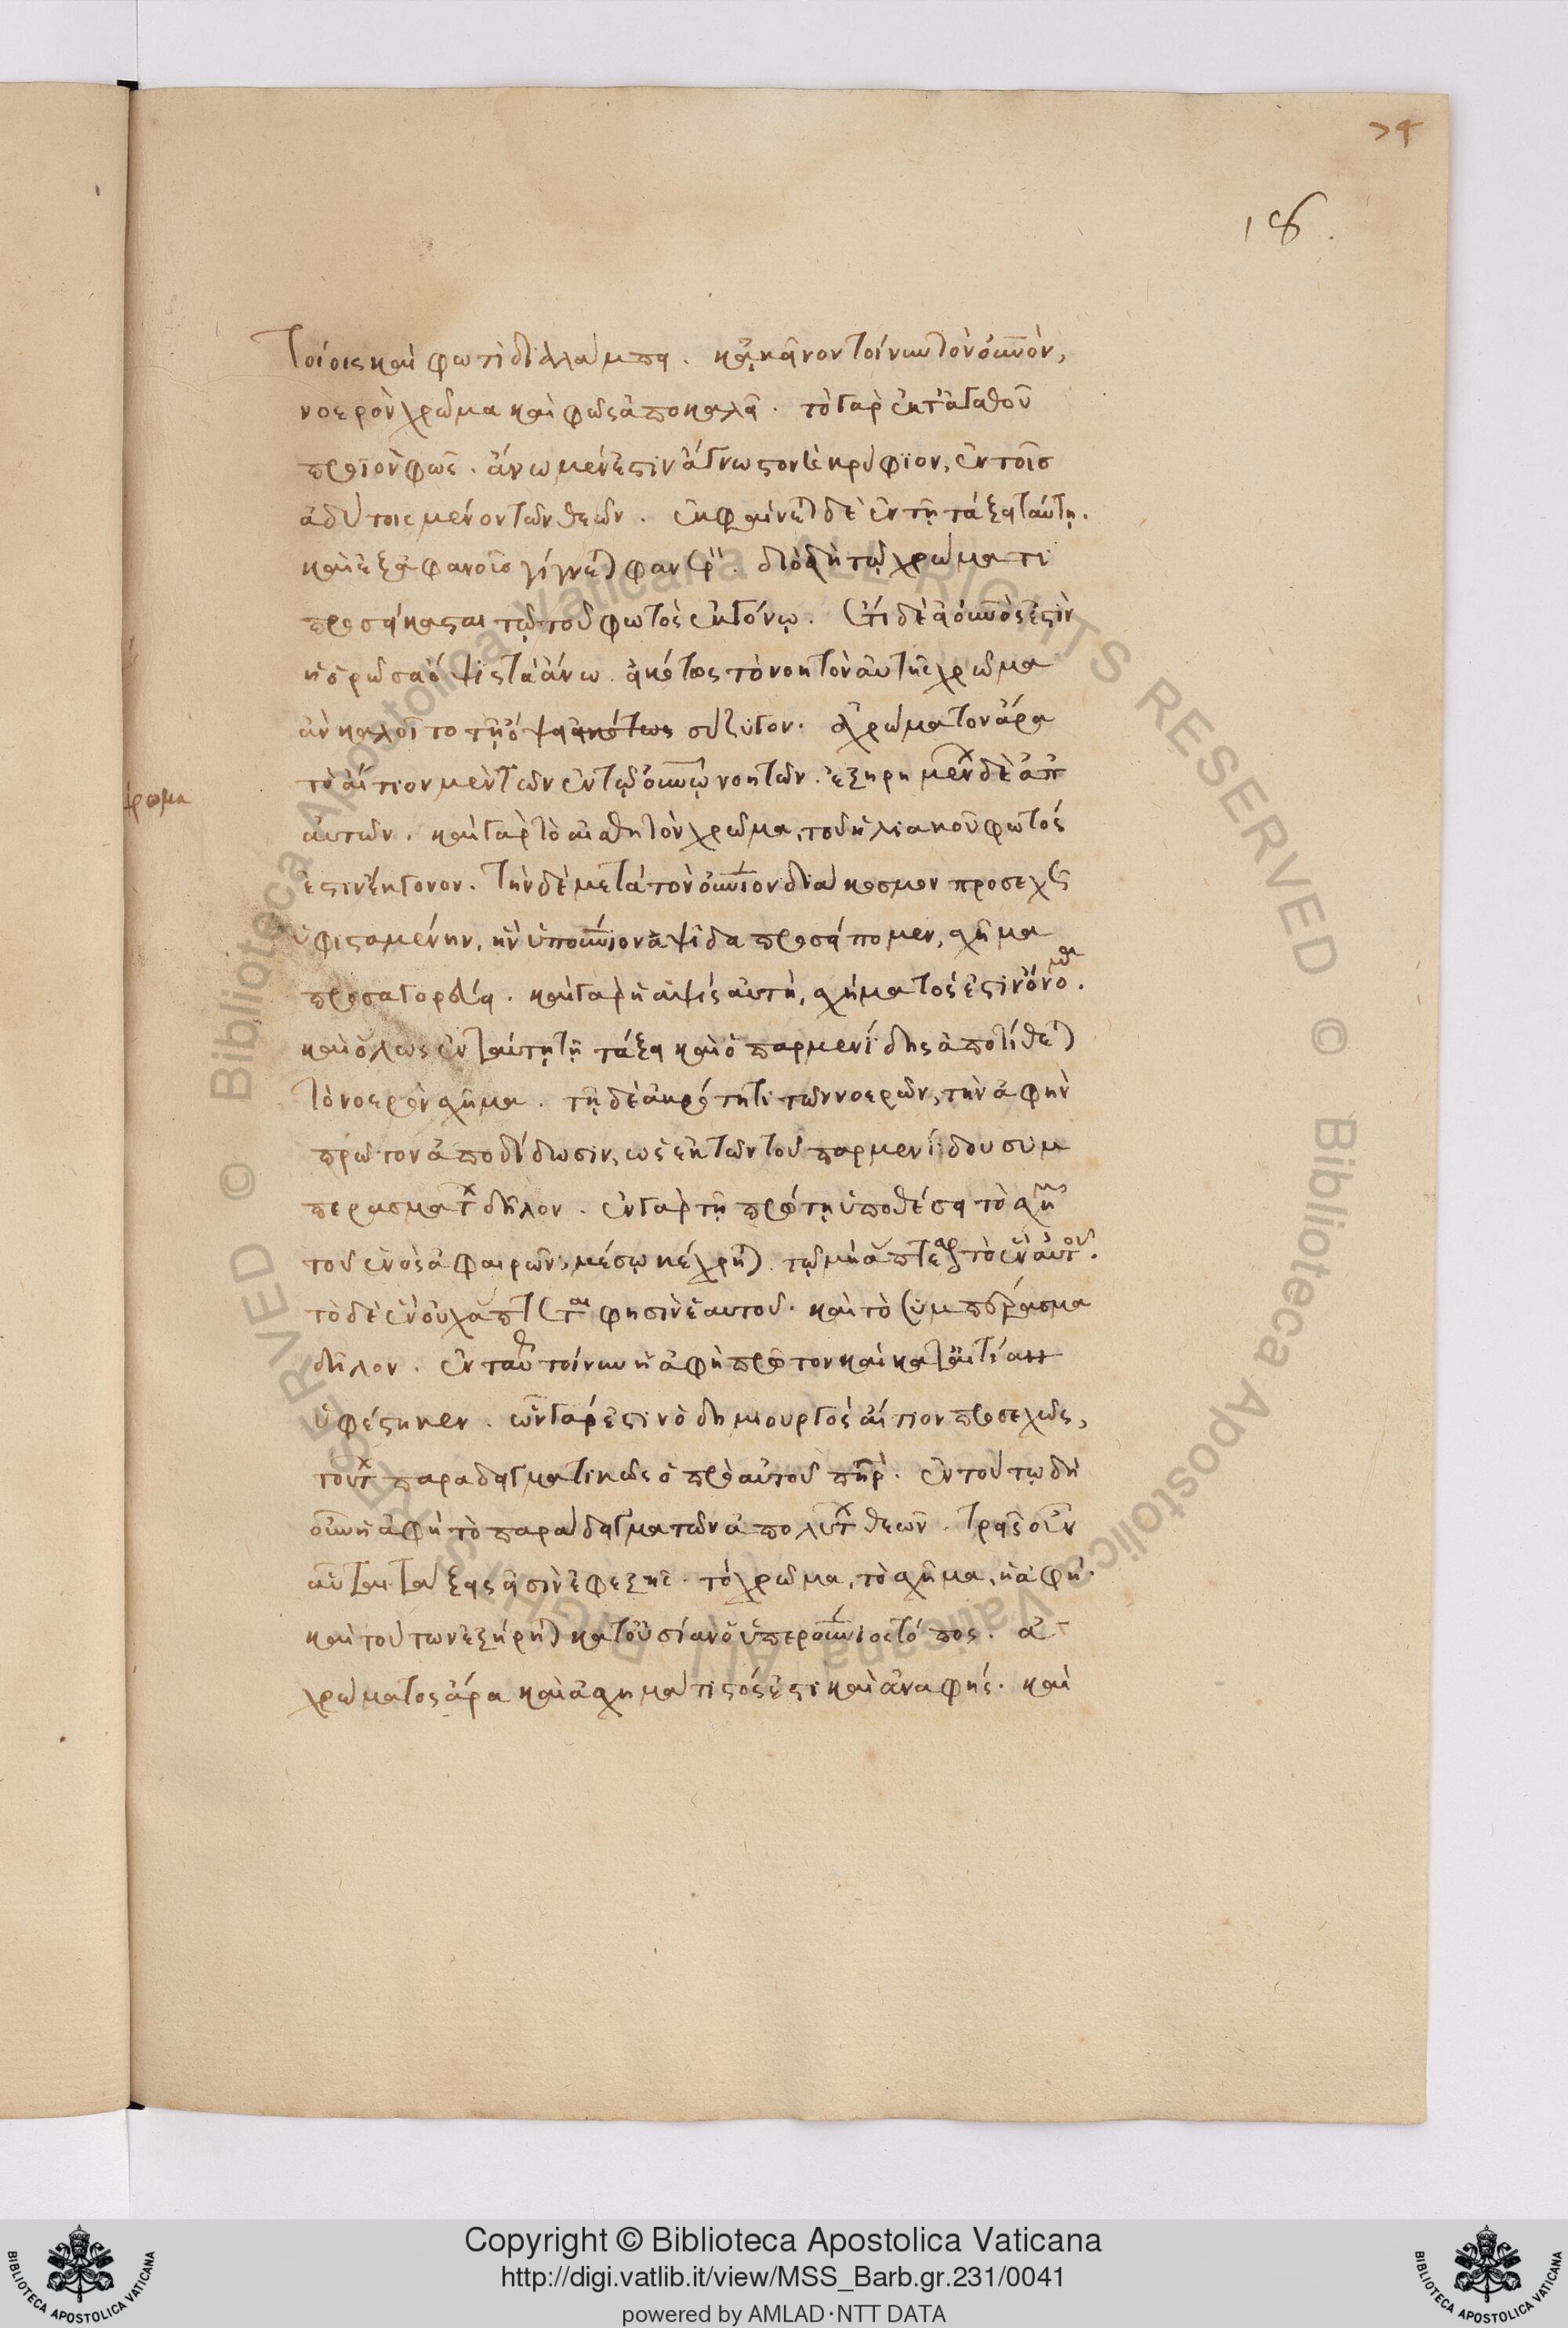 34
18.
τοίοις καὶ φωτὶ διαλάμπει. κἀκεῖνον τοίνυν τὸν οὐνὸν,
νοερὸν χρῶμα καὶ φῶς ἀποκαλεῖ. τὸ γὰρ ἐκ τἀγαθοῦ
προϊὸν φῶς. ἄνω μέν ἐστιν ἄγνωστον καὶ κρύφιον, ἐν τοῖς
ἀδύτοις μένον τῶν θεῶν. ἐκφαίνεται δὲ ἐν τῇ τάξει ταύτῃ.
καὶ ἐξ ἀφανοῦς γίγνεται φανερόν. διὸ δὴ τῷ χρώματι
προσείκασται τῷ τοῦ φωτὸς ἐκγόνῳ. ἔτι δὲ εἰ οὐνός ἐστιν
ἡ ὁρῶσα ὄψις τὰ ἄνω. εἰκότως τὸ νοητὸν αὐτῆς χρῶμα
ἂν καλοῖτο τῇ ὄψει εἰκότως σύζυγον. ἀχρώματον ἄρα
τὸ αἴτιον μὲν τῶν ἐν τῷ οὐνῷ νοητῶν. ἐξηρημένον δὲ ἀπ
χρῶμα
αὐτῶν. καὶ γὰρ τὸ αἰσθητὸν χρῶμα, τοῦ ἡλιακοῦ φωτός
ἐστιν ἔκγονον. τὴν δὲ μετὰ τὸν οὐνιον διάκοσμον προσεχῶς
ὑφισταμένην, ἣν ὑπουνιον ἀψῖδα προσείπομεν, σχῆμα
προσαγορεύει. καὶ γὰρ ἡ ἀψὶς αὐτὴ, σχήματός ἐστιν ὄνομα.
καὶ ὅλως ἐν ταύτῃ τῇ τάξει καὶ ὁ παρμενίδης ἀποτίθεται
τὸ νοερὸν σχῆμα. τῇ δὲ ἀκρότητι τῶν νοερῶν, τὴν ἁφὴν
πρῶτον ἀποδίδωσιν, ὡς ἐκ τῶν τοῦ παρμενίδου συμ
περασμάτων δῆλον. ἐν γὰρ τῇ πρώτῃ ὑποθέσει τὸ σχῆμα
τοῦ ἑνὸς ἀφαιρῶν, μέσῳ κέχρηται τῷ μὴ ἅπτεσθαι τὸ ἓν αὐτοῦ.
τὸ δὲ ἓν οὐχ ἅπτεται φησὶν ἑαυτοῦ. καὶ τὸ συμπέρασμα
δῆλον. ἐνταῦθα τοίνυν ἡ ἁφὴ πρῶτον καὶ κατ' αἰτίαν
ὑφέστηκεν. ὧν γάρ ἐστιν ὁ δημιουργὸς αἴτιον προσεχῶς,
τούτων παραδειγματικῶς ὁ πρὸ αὐτοῦ πηρ. ἐν τούτῳ δὴ
οὖν ἡ ἁφὴ τὸ παράδειγμα τῶν ἀπολύτων θεῶν. τρεῖς οὖν
αὗται τάξεις εἰσὶν ἐφεξῆς. τὸ χρῶμα, τὸ σχῆμα, ἡ ἁφή.
καὶ τούτων ἐξῄρηται κατ' οὐσίαν ὁ ὑπερουνιος τόπος. ἀ-
χρώματος ἄρα καὶ ἀσχημάτιστός ἐστι καὶ ἀναφής. καὶ
Copyright © Biblioteca Apostolica Vaticana
http://digi.vatlib.it/view/MSS_Barb.gr.231/0041
powered by AMLAD·NTT DATA